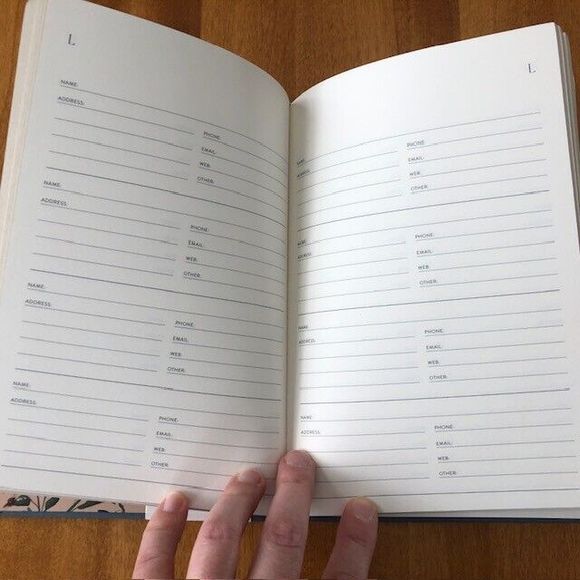 L
NAME:
ADDRESS:
PHONE:
EMAIL:
WEB:
OTHER:
NAME:
ADDRESS:
PHONE:
EMAIL:
WEB:
OTHER:
NAME:
ADDRESS:
PHONE:
EMAIL:
WEB:
OTHER:
NAME:
ADDRESS:
PHONE:
EMAIL:
WEB:
OTHER:
L
NAME:
ADDRESS:
PHONE:
EMAIL:
WEB:
OTHER:
NAME:
ADDRESS:
PHONE:
EMAIL:
WEB:
OTHER:
NAME:
ADDRESS:
PHONE:
EMAIL:
WEB:
OTHER:
NAME:
ADDRESS:
PHONE:
EMAIL:
WEB:
OTHER: